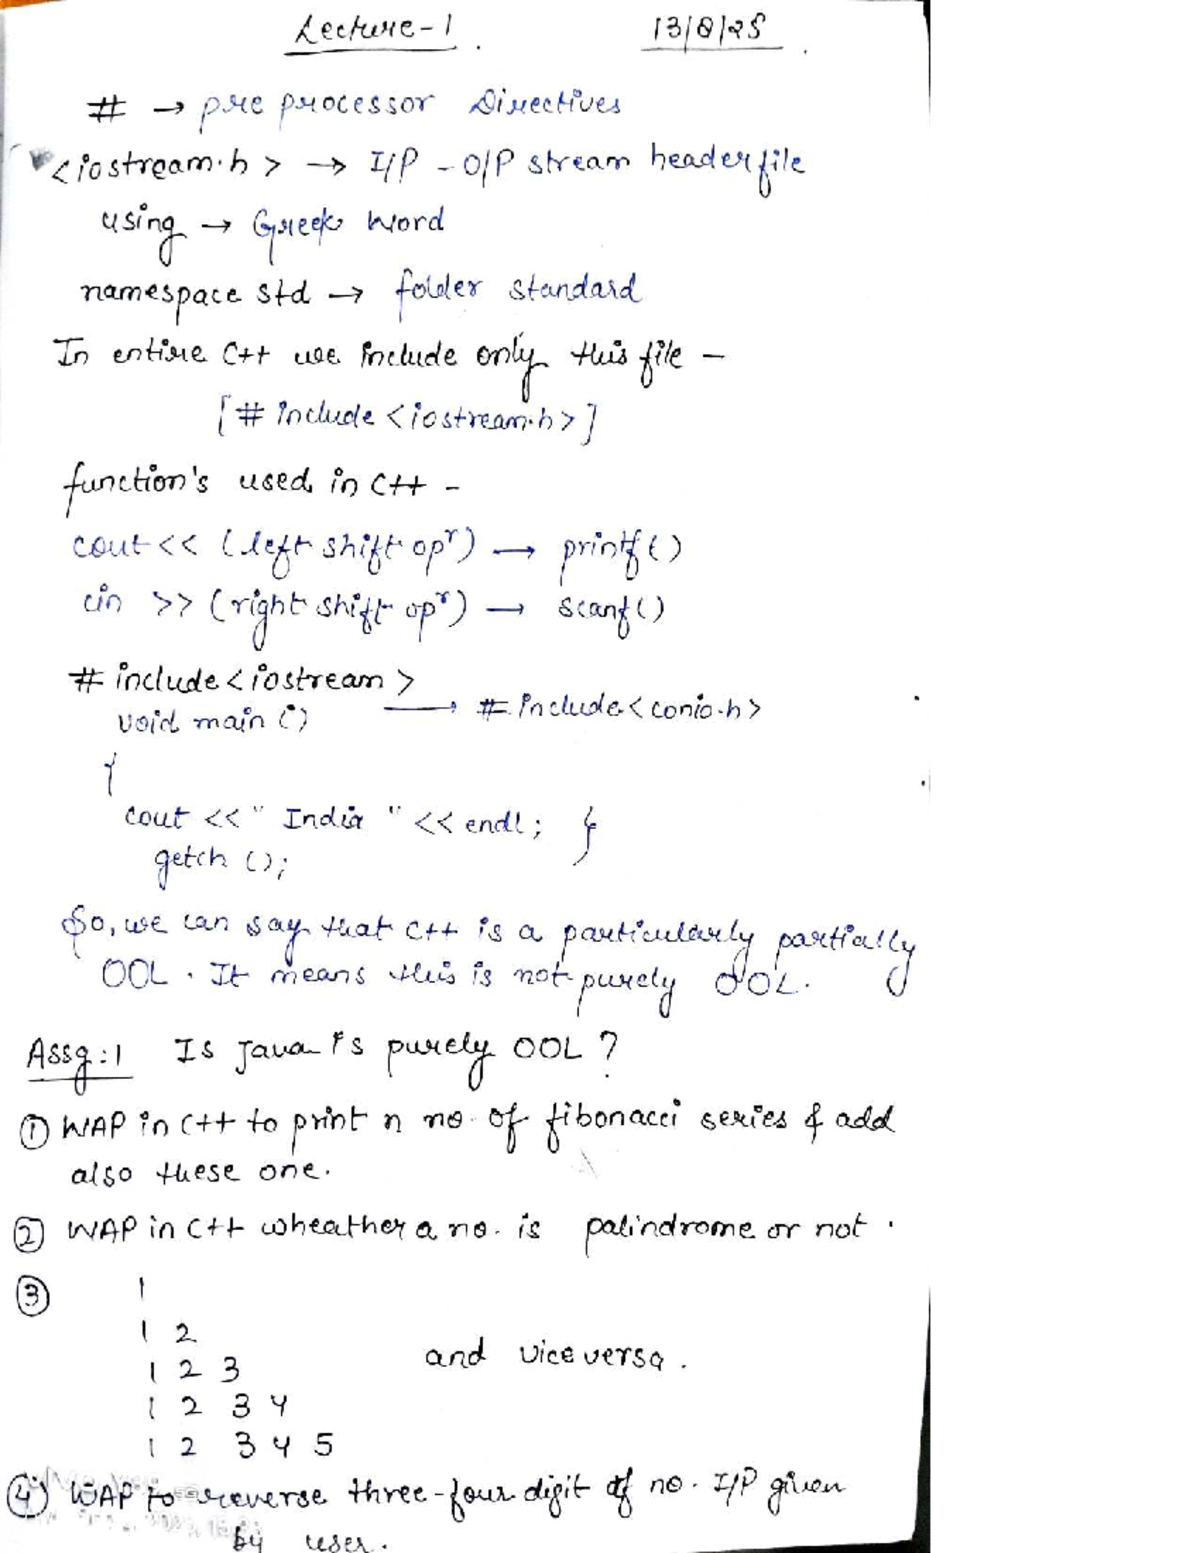 Lecture-1 13/8/25
# → pre processor Directives
<iostream.h> → I/P - O/P stream header file
using → Greek word
namespace std → folder standard
In entire C++ we include only this file -
[# include <iostream.h>]
function's used in C++ -
cout << (left shift opr) → printf()
cin >> (right shift opr) → scanf()
# include <iostream> → # include <conio.h>
void main ()
{
cout << " India " << endl; }
getch ();
So, we can say that C++ is a particularly partially
OOL. It means this is not purely OOL.
Assg:1 Is Java is purely OOL?
① WAP in C++ to print n no. of fibonacci series & add
also these one.
② WAP in C++ wheather a no. is palindrome or not.
③ 1
1 2
1 2 3 and vice versa.
1 2 3 4
1 2 3 4 5
④ WAP to reverse three-four digit of no. I/P given
by user.